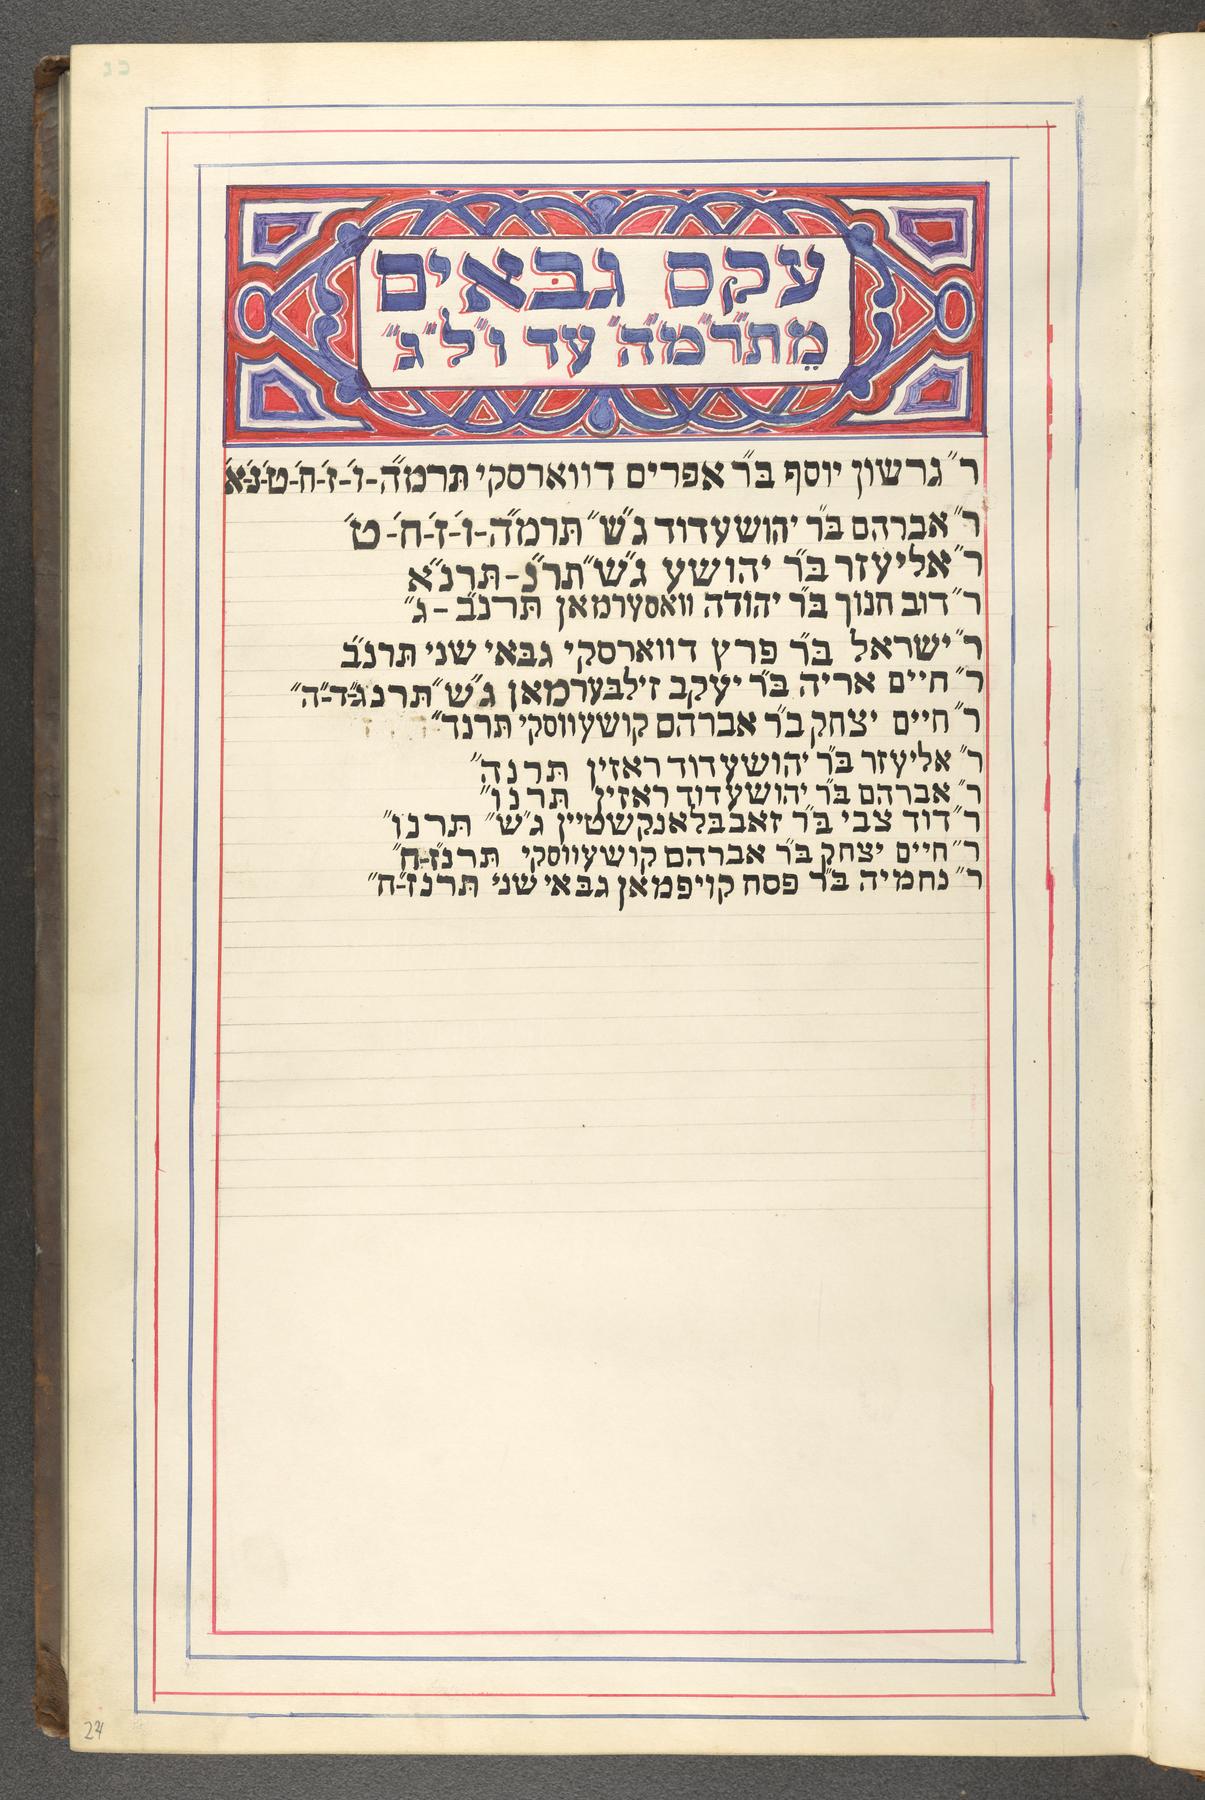 כג
עקס גבאים
מֵתרמ״ה עד ו״ל״ג״
ר״ גרשון יוסף בר״ אפרים דווארסקי תרמ״ה-ו׳-ז׳-ח׳-ט׳-נ׳-נ״א
ר״ אברהם בר״ יהושע דוד ג״ש״ תרמ״ה-ו׳-ז׳-ח׳-ט׳
ר״ אליעזר בר״ יהושע ג״ש״ תר״נ-תרנ״א
ר״ דוב חנוך בר״ יהודה וואסערמאן תרנ״ב-ג״
ר״ ישראל בר״ פרץ דווארסקי גבאי שני תרנ״ב
ר״ חיים אריה בר״ יעקב זילבערמאן ג״ש״ תרנג״-ד״-ה״
ר״ חיים יצחק בר״ אברהם קושעווסקי תרנד״
ר״ אליעזר בר״ יהושע דוד ראזין תרנה״
ר״ אברהם בר״ יהושע דוד ראזין תרנו״
ר״ דוד צבי בר״ זאב בלאנקשטיין ג״ש״ תרנו״
ר״ חיים יצחק בר״ אברהם קושעווסקי תרנז״-ח״
ר״ נחמיה בר״ פסח קויפמאן גבאי שני תרנז״-ח״
24